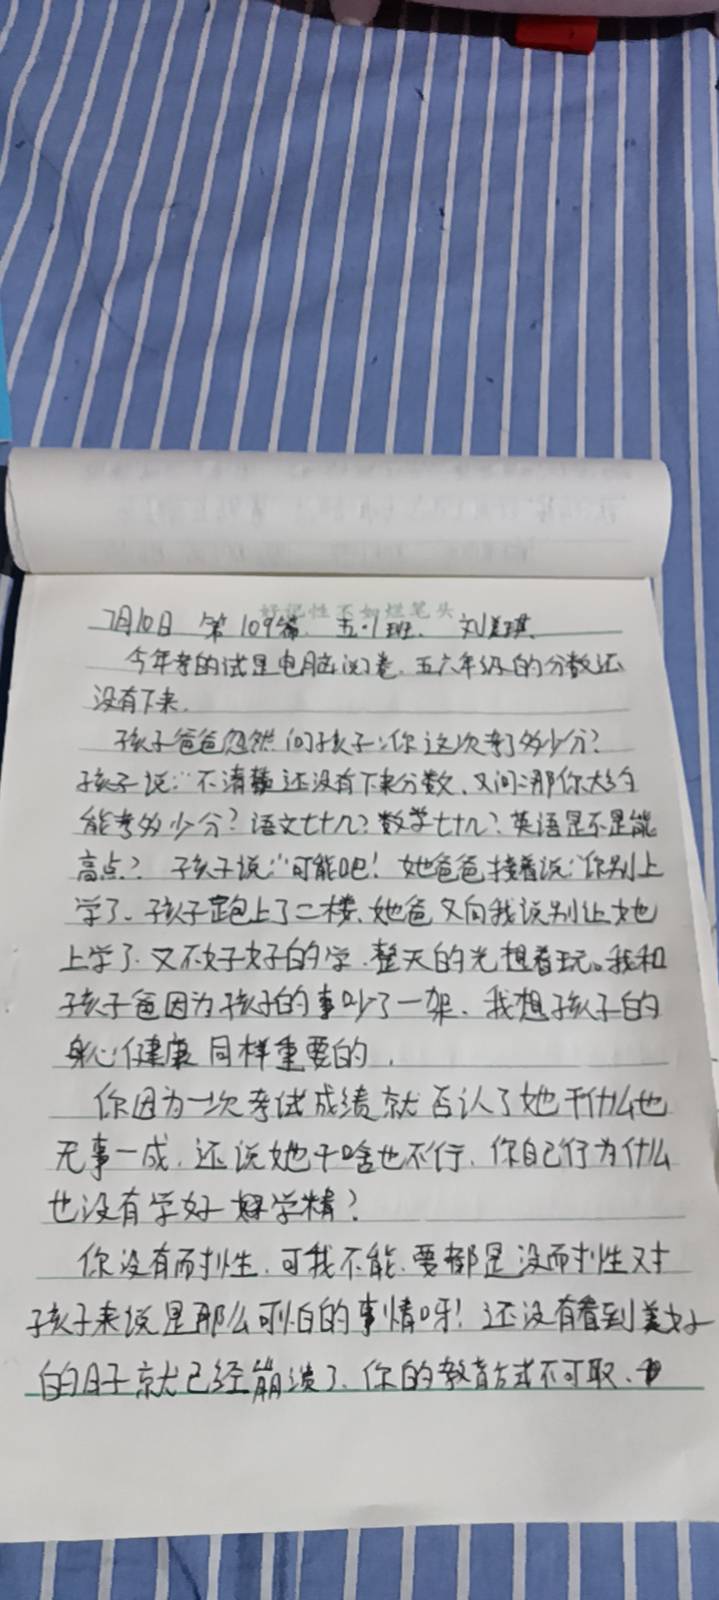 好记性不如烂笔头
7月10日 第109篇. 五·1班. 刘美琪
今年考的试是电脑阅卷.五六年级的分数还
没有下来.
孩子爸爸忽然问孩子:你这次考了多少分?
孩子说:"不清楚还没有下来分数.又问:那你大约
能考多少分?语文七十几?数学七十几?英语是不是能
高点?孩子说:"可能吧!她爸爸接着说:"你别上
学了.孩子跑上了二楼.她爸又向我说别让她
上学了.又不好好的学.整天的光想着玩。我和
孩子爸因为孩子的事吵了一架.我想孩子的
身心健康同样重要的.
你因为一次考试成绩就否认了她干什么也
无事一成.还说她干啥也不行.你自己行为什么
也没有学好 学精?
你没有耐性.可我不能.要都是没耐性对
孩子来说是那么可怕的事情呀!还没有看到美好
的日子就已经崩溃了.你的教育方式不可取.